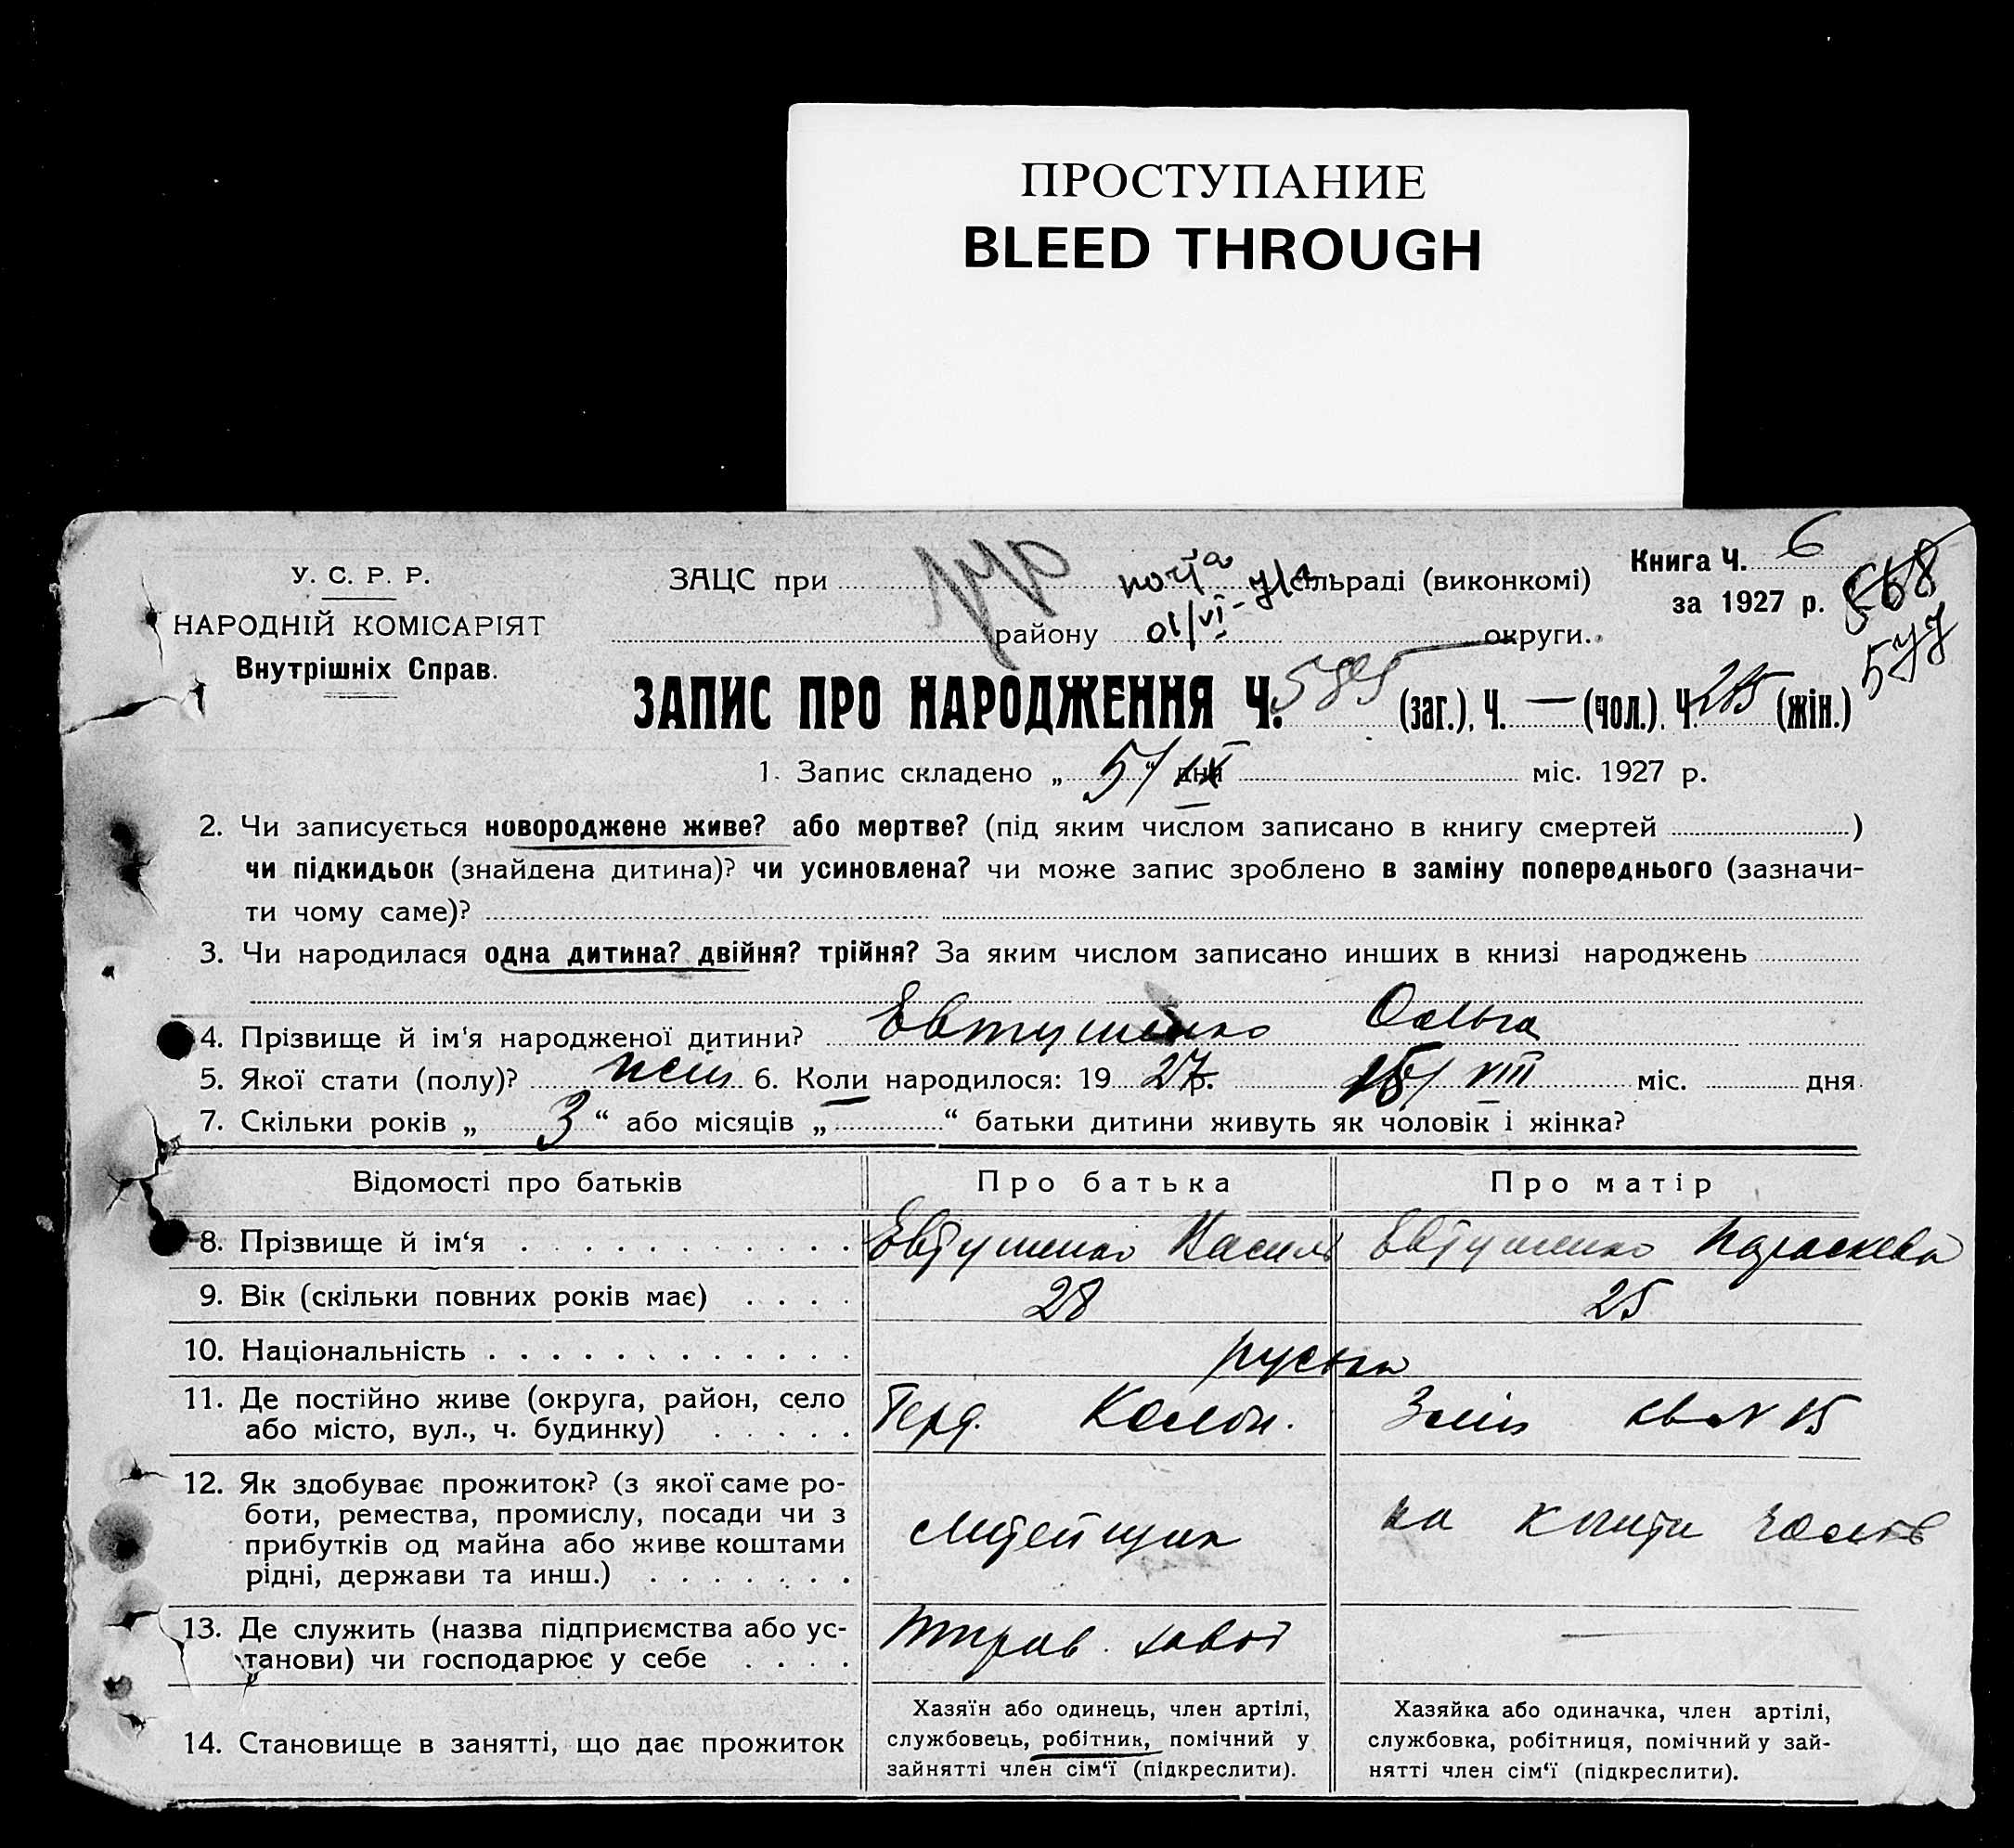 ПРОСТУПАНИЕ
BLEED THROUGH
Книга Ч. 6
У. С. Р. Р.
ЗАЦС при сільраді (виконкомі)
за 1927 р. 568
НАРОДНІЙ КОМІСАРІЯТ
району округи.
577
Внутрішніх Справ.
ЗАПИС ПРО НАРОДЖЕННЯ Ч. 585 (заг.), Ч. — (чол.), Ч. 285 (жін.)
1. Запис складено „ 5/IX “ дня міс. 1927 р.
2. Чи записується новороджене живе? або мертве? (під яким числом записано в книгу смертей )
чи підкидьок (знайдена дитина)? чи усиновлена? чи може запис зроблено в заміну попереднього (зазначи-
ти чому саме)?
3. Чи народилася одна дитина? двійня? трійня? За яким числом записано инших в книзі народжень
4. Прізвище й ім'я народженої дитини? Евтушенко Ольга
5. Якої стати (полу)? жін 6. Коли народилося: 19 27 р. /VIII міс. дня
7. Скільки років „ 3 “ або місяців „ “ батьки дитини живуть як чоловік і жінка?
Відомості про батьків Про батька Про матір
8. Прізвище й ім'я Евтушенко Василь Евтушенко Параскева
9. Вік (скільки повних років має) 28 25
10. Національність руська
11. Де постійно живе (округа, район, село
або місто, вул., ч. будинку)
Колон. кв № 15
12. Як здобуває прожиток? (з якої саме ро-
боти, ремества, промислу, посади чи з
прибутків од майна або живе коштами
рідні, держави та инш.)
литейщик на кошти
13. Де служить (назва підприємства або ус-
танови) чи господарює у себе
завод —
14. Становище в занятті, що дає прожиток
Хазяїн або одинець, член артілі,
службовець, робітник, помічний у
зайнятті член сім'ї (підкреслити).
Хазяйка або одиначка, член артілі,
службовка, робітниця, помічний у зай-
нятті член сім'ї (підкреслити).